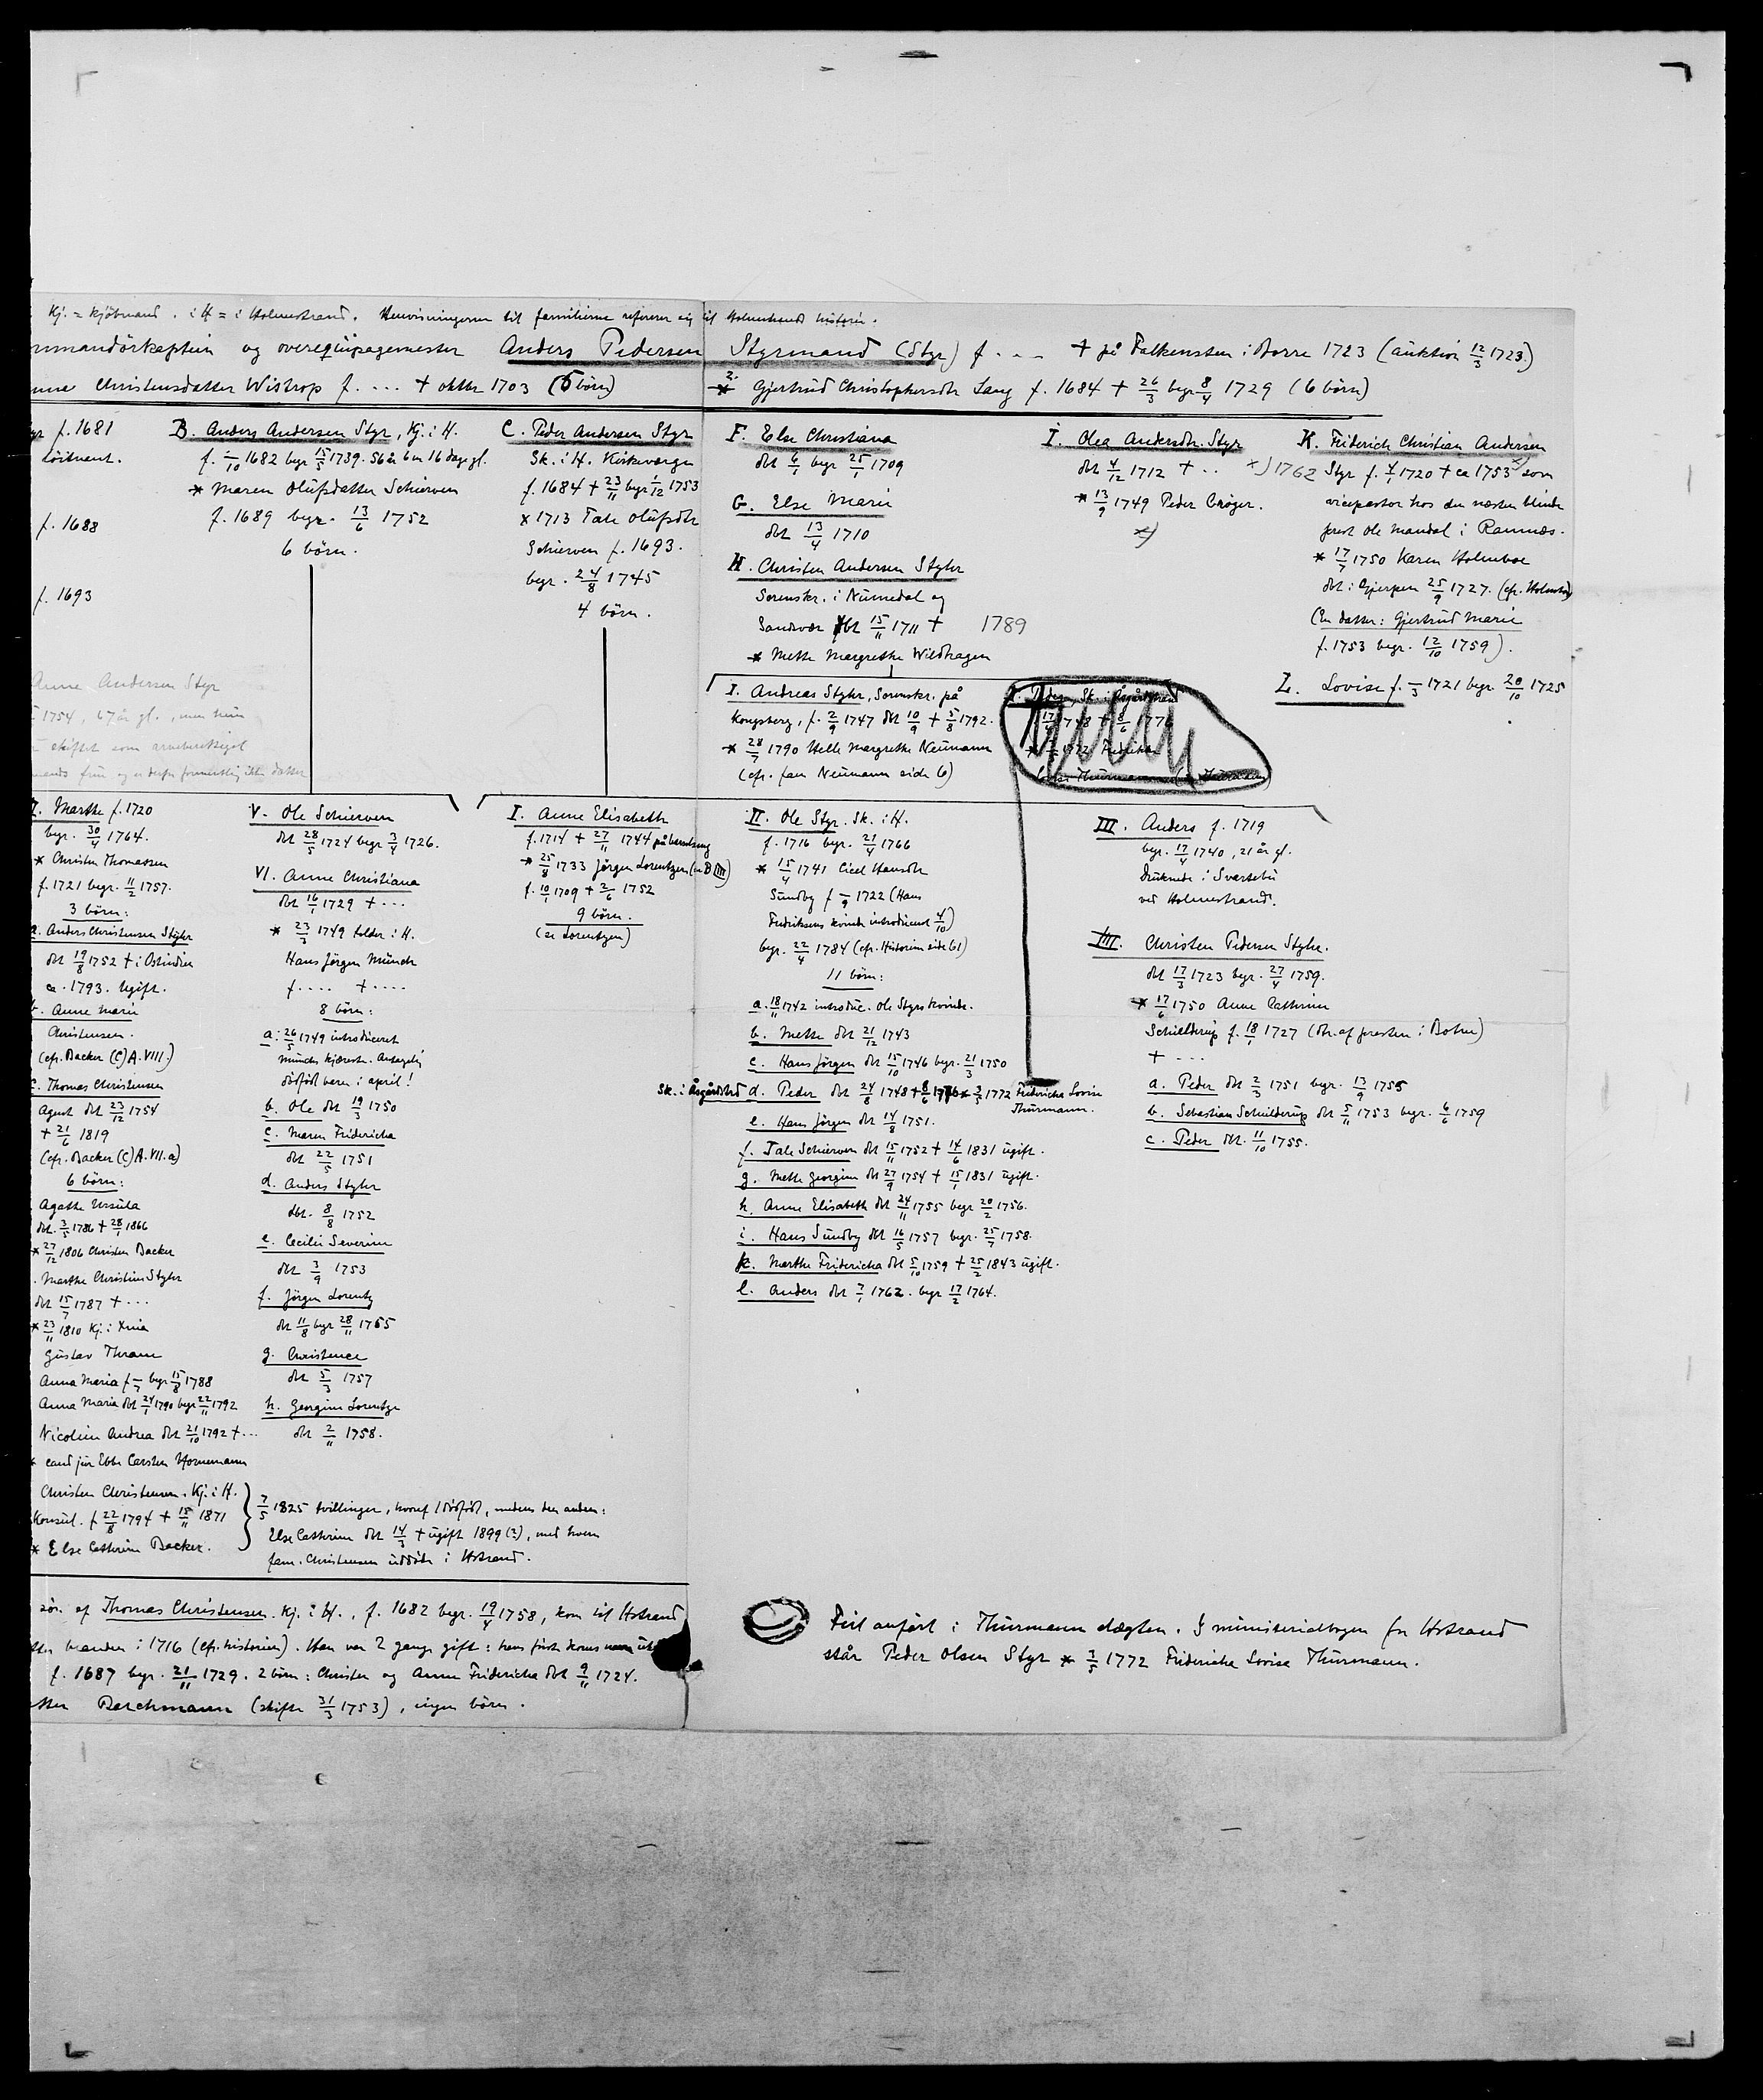 Kj. = kjöbmand. i H = i Holmestrand. Henvisningerne til familierne refererer sig til Holmestrands historie.
og overequipagemester Anders Pedersen Styrmand (Styr) f. ... † på Falkensten i Borre 1723 (auktion 12/3 1723.)
Christensdatter Wistrop f. ... † oktbr 1703 (5 börn)
2. * Gjertrud Christophersdtr Lang f. 1684 † 26/3 begr 8/4 1729 (6 börn)
f. 1681
f. 1688
f. 1693
Anne Andersen Styr
1754, 67 år gl., men hun
skiftet som arveberettiget
B. Anders Andersen Styr, Kj. i H.
f. –/10 1682 begr 15/5 1739. 56 år 6 m 16 dage gl.
* Maren Olufsdatter Schierven
f. 1689 begr. 13/6 1752
6 börn.
C. Peder Andersen Styr
Sk. i H. Kirkeværge
f. 1684 † 23/11 begr 1/12 1753
* 1713 Tale Olufsdtr
Schierven f. 1693.
begr. 24/8 1745
4 börn.
F. Else Christiana
dbt 6/1 begr 25/1 1709
G. Else Marie
dbt 13/4 1710
H. Christen Andersen Styhr
Sorenskr. i Numedal og
Sandsvær dbt 15/11 1711 † 1789
* Mette Margrethe Wildhagen
I. Olea Andersdtr. Styr
dbt 4/12 1712 † .. x) 1762
* 13/9 1749 Peder Cröger.
x)
K. Friderich Christian Andersen
Styr f. 4/1 1720 † ca 1753 x) som
vicepastor hos den næsten blinde
prest Ole Mandal i Ramnæs.
* 17/7 1750 Karen Holmboe
dbt i Gjerpen 25/9 1727. (cfr. Holmboe)
(En datter: Gjertrud Marie
f. 1753 begr. 12/10 1759).
L. Lovise f. –/3 1721 begr. 20/10 1725
I. Andreas Styhr, Sorenskr. på
Kongsberg, f. 2/9 1747 dbt 10/9 † 5/8 1792.
* 28/7 1790 Helle Margrethe Neumann
(cfr. fam Neumann side 6)
Peder, Sk. i Åsgårdstrand
17/ 1748 † 8/6 1776
1772 Fridericha
Thurmann
Marthe f. 1720
begr. 30/4 1764.
* Christen Thomassen
f. 1721 begr. 11/2 1757.
3 börn:
a. Anders Christensen Styhr
dbt 19/8 1752 † i Ostindien
ca. 1793. Ugift.
b. Anne Marie
Christensen.
(cfr. Backer (C) A. VIII.)
c. Thomas Christensen
Agent dbt 23/12 1754
† 21/6 1819
(cfr. Backer (C) A. VII. a)
6 börn:
Agathe Ursula
dbt. 3/5 1786 † 28/1 1866
* 27/12 1806 Christen Backer
Marthe Christine Styhr
dbt 15/7 1787 † ...
* 23/11 1810 Kj. i Xnia
Gustav Thrane
Anna Maria f –/7 begr 15/8 1788
Anna Maria dbt 24/1 1790 begr 22/11 1792
Nicoline Andrea dbt 21/10 1792 † ...
* cand jur Ebbe Carsten Hornemann
Christen Christensen. Kj. i H.
Konsul. f 22/8 1794 † 15/11 1871
* Else Cathrine Backer.
7/5 1825 tvillinger, hvoraf 1 dödföd, medens den anden:
Else Cathrine dbt 14/3 † ugift 1899 (?), med hvem
fam. Christensen uddöde i Hstrand.
V. Ole Schierven
dbt 28/5 1724 begr 3/4 1726.
VI. Anne Christiana
dbt 16/1 1729 † ...
* 23/3 1749 tolder i H.
Hans Jörgen Münch
f .... † ....
8 börn:
a: 26/5 1749 introduceret
Münchs kjæreste. Antagelig
dödföd barn i april!
b. Ole dbt 19/3 1750
c. Maren Fridericha
dbt 22/5 1751
d. Anders Styhr
dbt. 8/8 1752
e. Cecilie Severine
dbt 3/9 1753
f. Jörgen Lorentz
dbt 11/8 begr 28/11 1755
g. Christence
dbt 5/3 1757
h. Georgine Lorentze
dbt 2/11 1758.
I. Anne Elisabeth
f. 1714 † 27/11 1744 på barselseng
* 25/8 1733 Jörgen Lorentzen (se B III)
f. 10/1 1709 † 2/6 1752
9 börn.
(se Lorentzen)
II. Ole Styr. Sk. i H.
f. 1716 begr. 21/4 1766
* 15/4 1741 Cicel Hansdtr
Sundby f –/9 1722 (Hans
Fredriksens kvinde introduceret 4/10)
begr. 22/4 1784 (cfr. Historien side 61)
11 börn:
a. 18/11 1742 introduc. Ole Styrs kvinde.
b. Mette dbt 21/12 1743
c. Hans Jörgen dbt 15/10 1746 begr. 21/3 1750
Sk. i Åsgårdstrd d. Peder dbt 24/8 1748 † 8/6 1776 * 3/5 1772 Fridericha Lovise
Thurmann.
e. Hans Jörgen dbt 14/8 1751.
f. Tale Schierven dbt 15/11 1752 † 14/6 1831 ugift.
g. Mette Georgine dbt 27/9 1754 † 15/1 1831 ugift.
h. Anne Elisabeth dbt 24/11 1755 begr 20/2 1756.
i. Hans Sundby dbt 16/5 1757 begr. 25/7 1758.
k. Marthe Fridericha dbt 5/10 1759 † 25/2 1843 ugift.
l. Anders dbt 7/1 1762. begr 17/2 1764.
III. Anders f. 1719
begr. 17/4 1740, 21 år gl.
druknede i Svartebu
ved Holmestrand.
IIII. Christen Pedersen Styhr.
dbt 17/3 1723 begr. 27/4 1759.
* 17/6 1750 Anne Cathrine
Schielderup f. 18/1 1727 (dtr. af presten i Botne)
† ....
a. Peder dbt 2/3 1751 begr. 13/9 1755
b. Sebastian Schielderup dbt 5/11 1753 begr. 6/6 1759
c. Peder dbt. 11/10 1755.
sön af Thomas Christensen. Kj. i H., f. 1682 begr. 19/4 1758, kom til Hstrand
branden i 1716 (cfr. historien). Han var 2 gange gift: hans förste kones navn
f. 1687 begr. 21/11 1729. 2 börn: Christen og Anne Fridericha dbt 9/11 1724.
Berchmann (skifte 31/3 1753), ingen börn.
Feil anfört i Thurmann slægten. I ministerialbogen for Hstrand
står Peder Olsen Styr * 3/5 1772 Fridericha Lovise Thurmann.